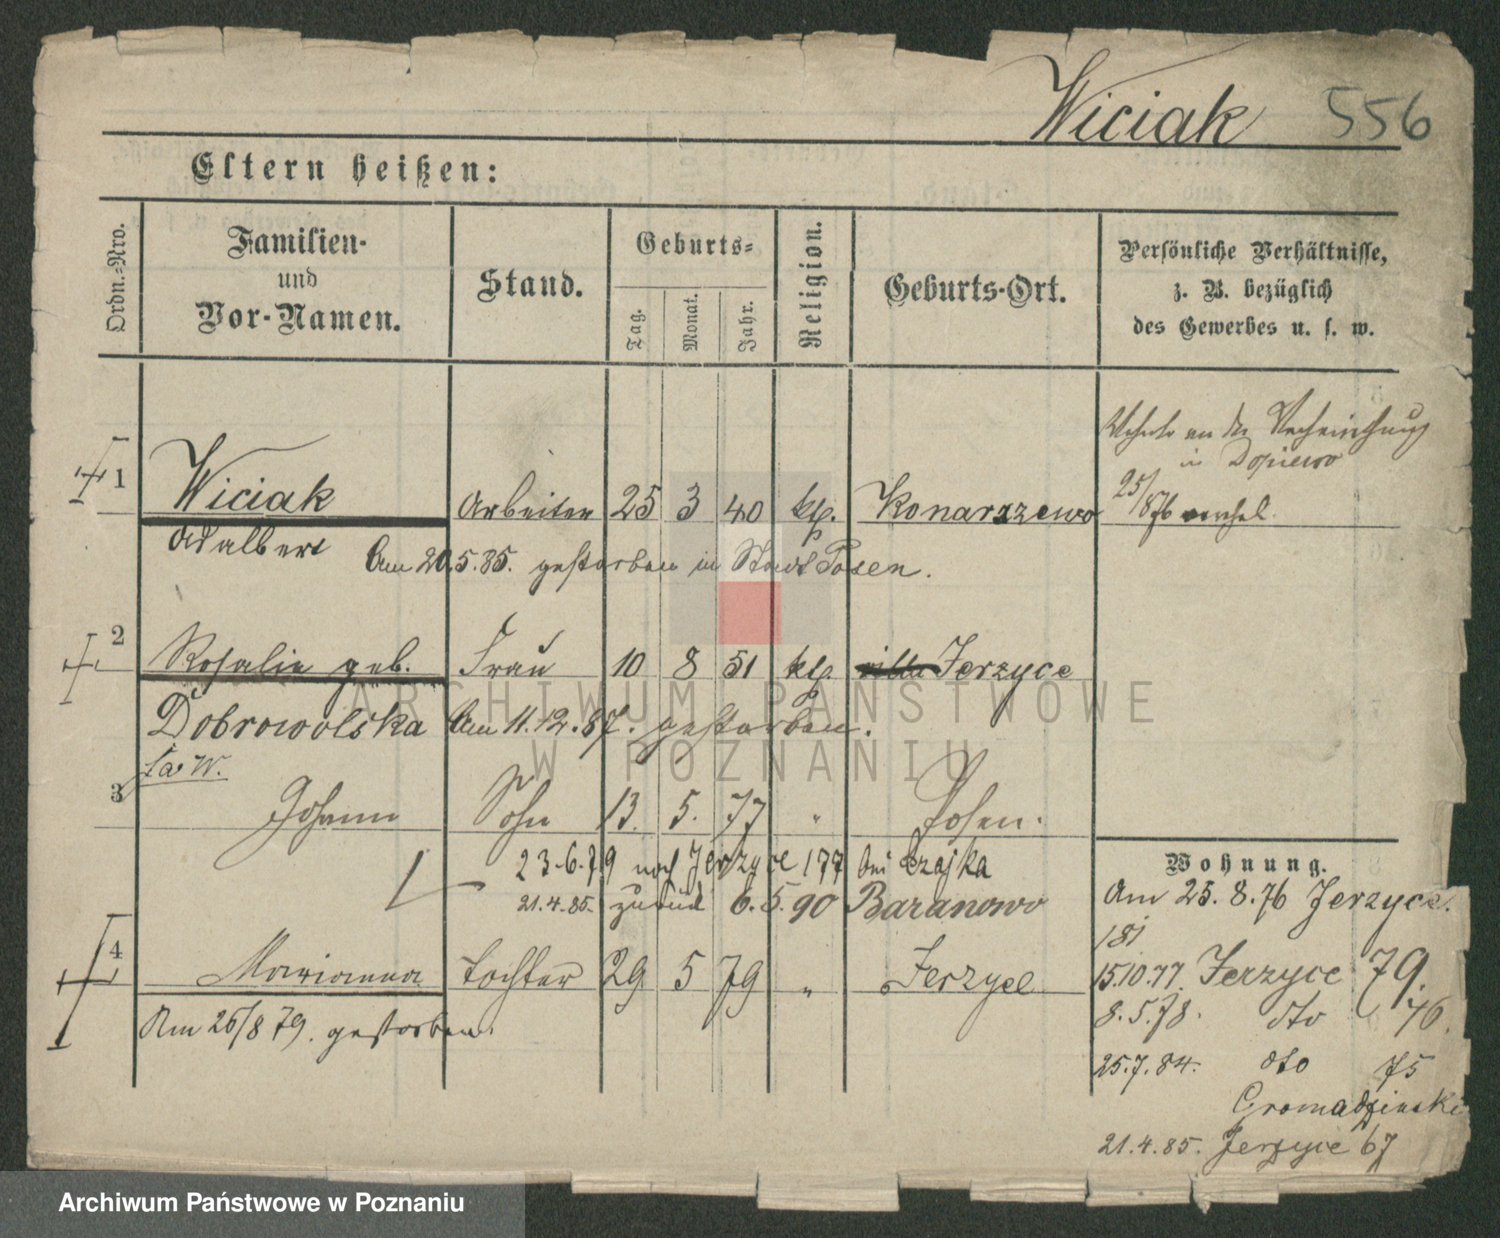 Wiciak 556
Eltern heißen:
Ordn.-Nro.
Familien-
und
Vor-Namen.
Stand.
Geburts-
Tag.
Monat.
Jahr.
Religion.
Geburts-Ort.
Persönliche Verhältnisse,
z. B. bezüglich
des Gewerbes u. s. w.
in Dopiewo
25/8 76
1 Wiciak Arbeiter 25 3 40 kth. Konarszewo
Adalbert Am 20.5.85. gestorben in Stadt Posen.
2 Rosalie geb. Frau 10 8 51 kth. Jerzyce
Dobrowolska Am 11.12.87. gestorben.
3 Johann Sohn 13. 5. 77 " Posen.
23.6.79 nach Jerzyce 177 bei Czajka
21.4.85. zurück 6.5.90 Baranowo
4 Marianna Tochter 29 5 79 " Jerzyce
Am 26/8 79. gestorben.
Wohnung.
Am 25.8.76 Jerzyce.
181
15.10.77. Jerzyce 79.
8.5.78. dto 76.
25.7.84. dto 75
Gromadzinski
21.4.85. Jerzyce 67
ARCHIWUM PAŃSTWOWE
W POZNANIU
Archiwum Państwowe w Poznaniu